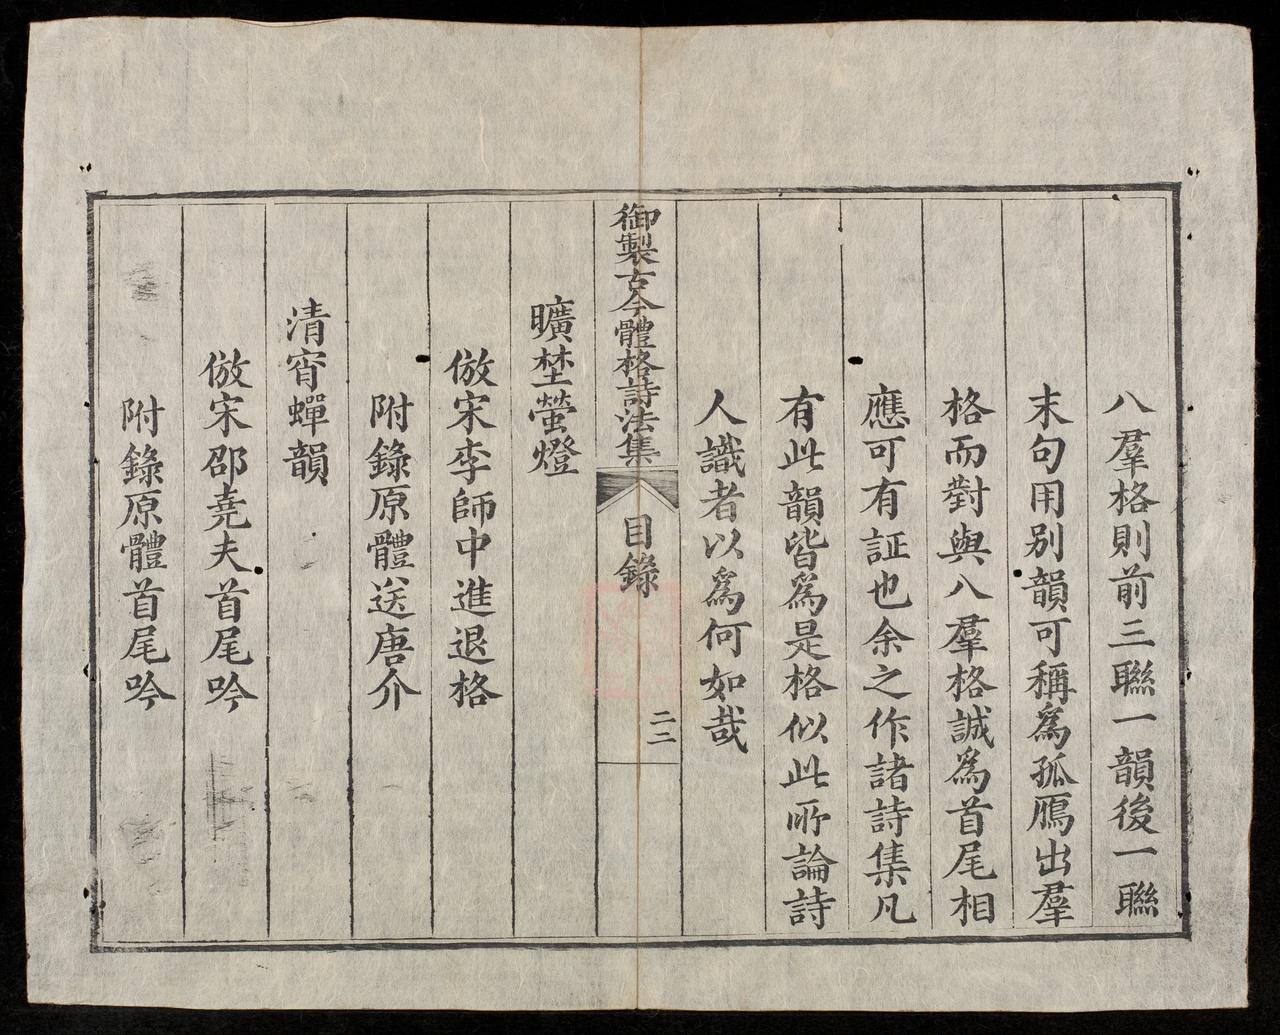 八羣格則前三聯一韻後一聯
末句用別韻可稱為孤鴈出羣
格而對與八羣格誠為首尾相
應可有証也余之作諸詩集凡
有此韻皆為是格似此所論詩
人識者以為何如哉
御製古今體格詩法集
目錄
二二
曠埜螢燈
倣宋李師中進退格
附錄原體送唐介
清宵蟬韻
倣宋邵堯夫首尾吟
附錄原體首尾吟